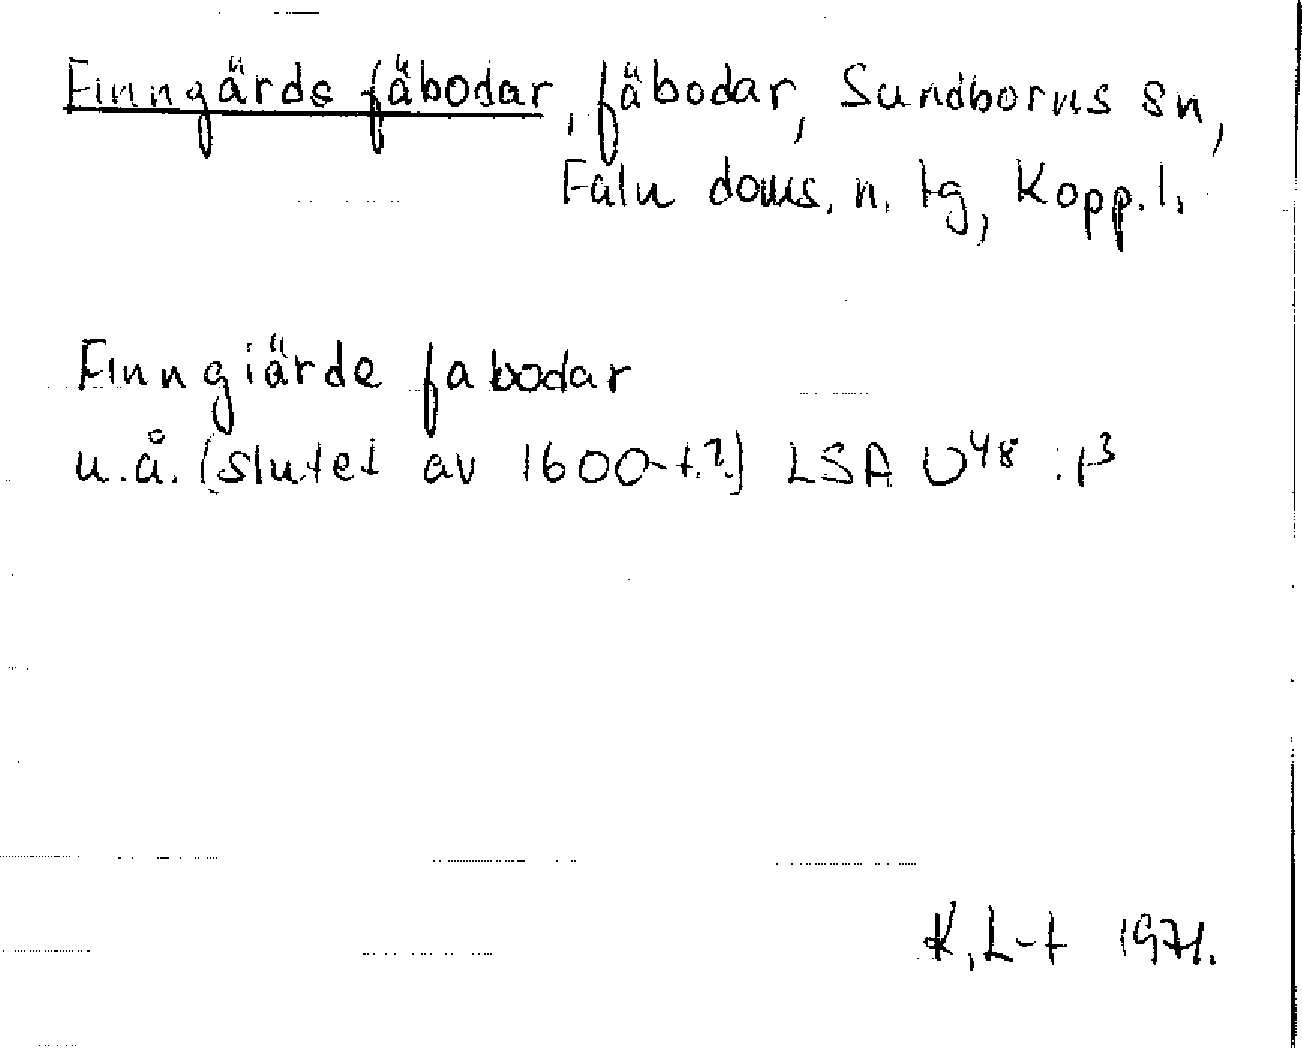 Finngärds fäbodar, fäbodar, Sundborns sn,
Falu doms. n. tg, Kopp. l.
Finngiärde fabodar
u.å. (slutet av 1600-t.?) LSA U48 : 13
K. L-t 1971.